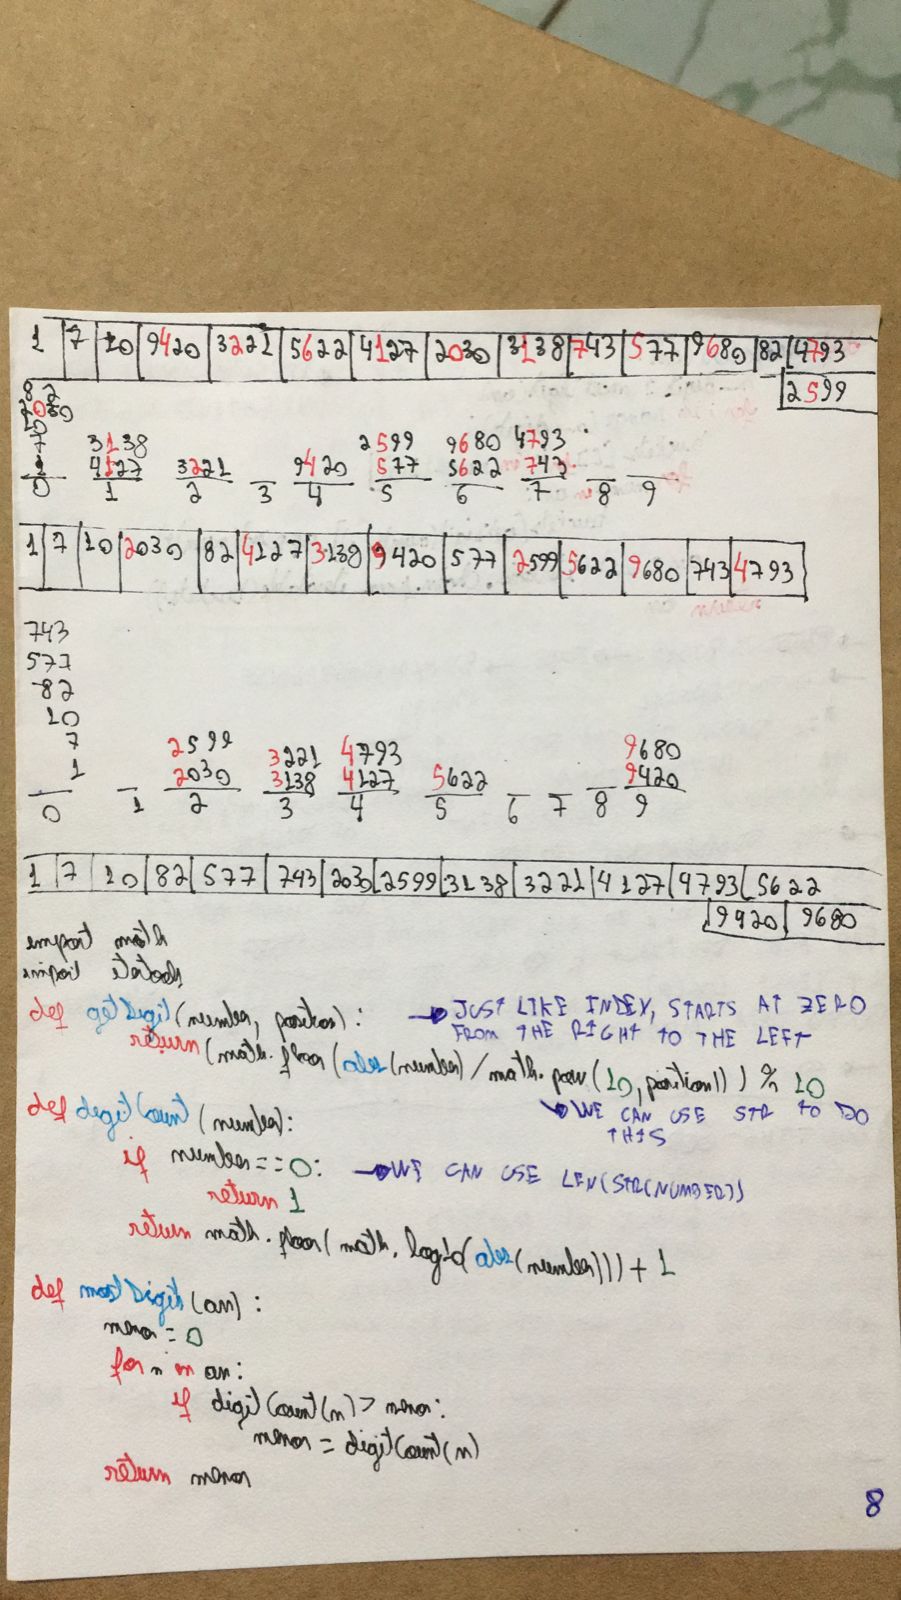 1 7 10 9420 3221 5622 4127 2030 3138 743 577 9680 82 4793
2599
82
2030
10
7
1
0
3138
4127
1
3221
2
3
9420
4
2599
577
5
9680
5622
6
4793
743
7
8
9
1 7 10 2030 82 4127 3138 9420 577 2599 5622 9680 743 4793
743
577
82
10
7
1
0
1
2599
2030
2
3221
3138
3
4793
4127
4
5622
5
6
7
8
9680
9420
9
1 7 10 82 577 743 2030 2599 3138 3221 4127 4793 5622
9420 9680
import math
def getDigit(number, position): → JUST LIKE INDEX, STARTS AT ZERO
FROM THE RIGHT TO THE LEFT
return math.floor(abs(number)/math.pow(10, position)) % 10
→ WE CAN USE STR TO DO
THIS
def digitCount(number):
if number == 0: → WE CAN USE LEN(STR(NUMBER))
return 1
return math.floor(math.log10(abs(number))) + 1
def mostDigit(arr):
= 0
for n in arr:
if digitCount(n) > :
= digitCount(n)
return
8